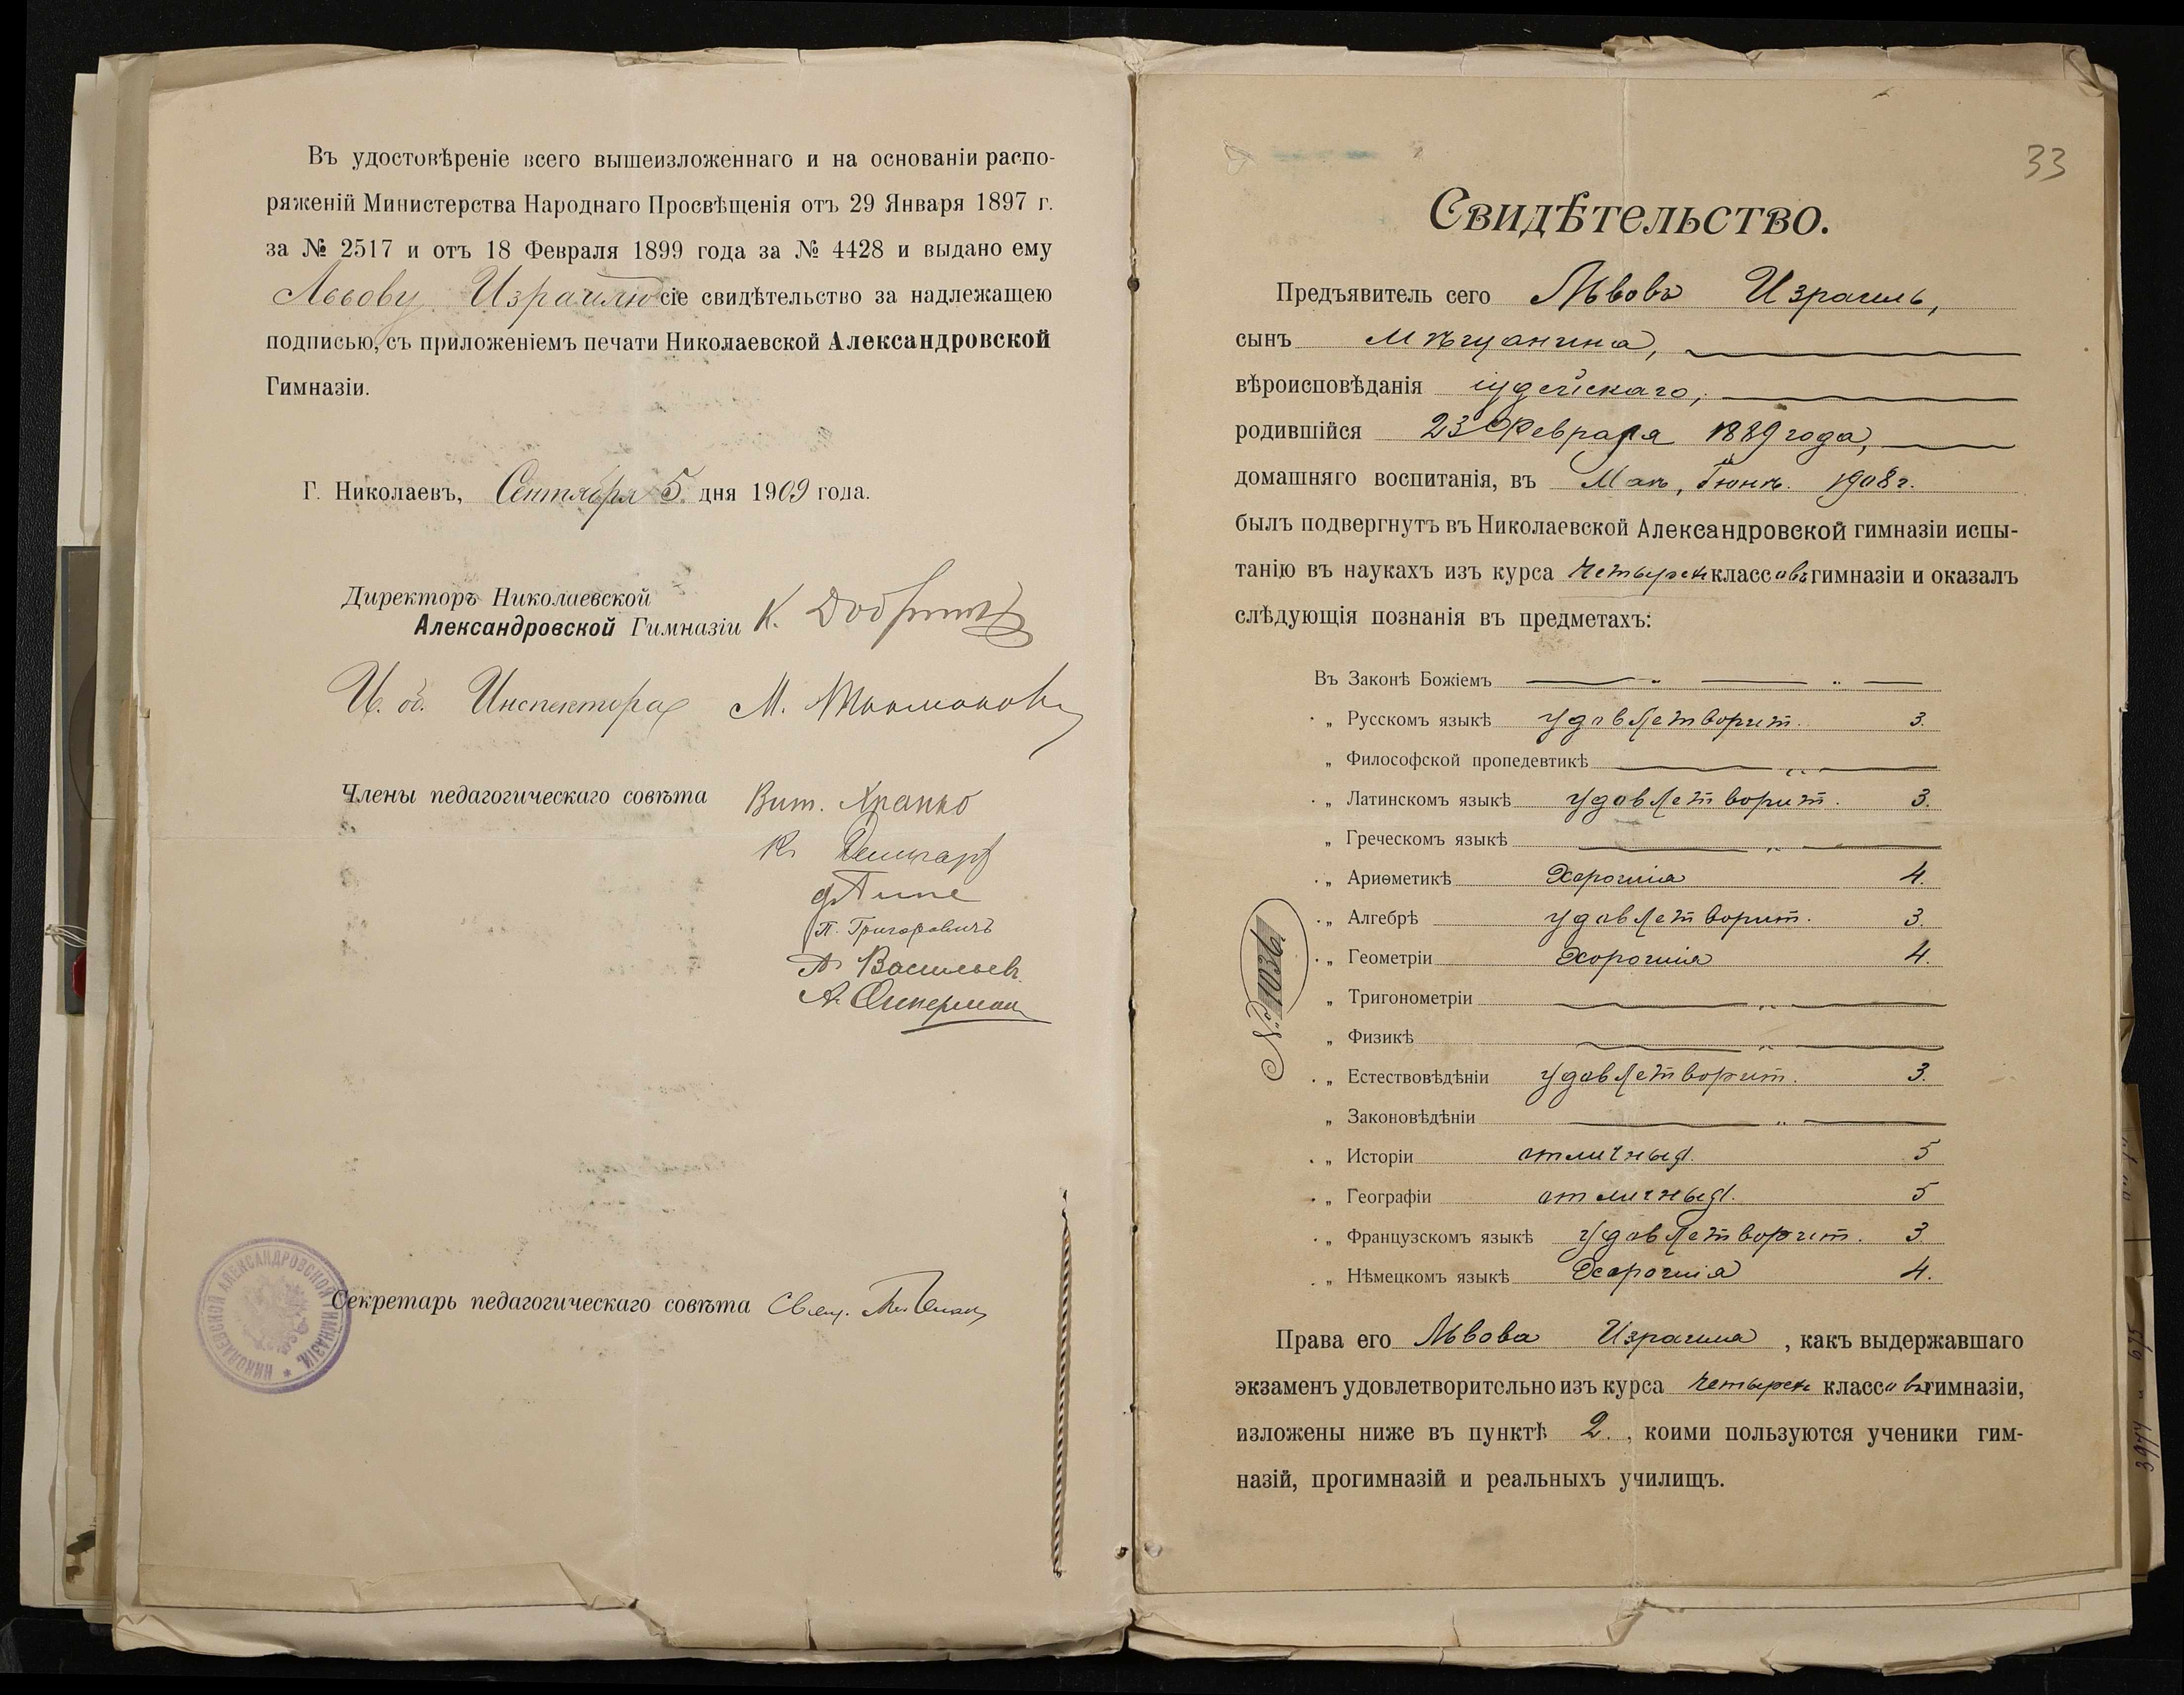 Въ удостовѣреніе всего вышеизложеннаго и на основаніи распо-
ряженій Министерства Народнаго Просвѣщенія отъ 29 Января 1897 г.
за № 2517 и отъ 18 Февраля 1899 года за № 4428 и выдано ему
Львову Израилю сіе свидѣтельство за надлежащею
подписью, съ приложеніемъ печати Николаевской Александровской
Гимназіи.
Г. Николаевъ, Сентября 5 дня 1909 года.
Директоръ Николаевской
Александровской Гимназіи К.
И. об. Инспектора М.
Члены педагогическаго совѣта Вит. Храпко
К.
П. Григоровичъ
Васильевъ
А.
Секретарь педагогическаго совѣта Свящ.
НИКОЛАЕВСКОЙ АЛЕКСАНДРОВСКОЙ ГИМНАЗІИ *
33
Свидѣтельство.
Предъявитель сего Львовъ Израиль,
сынъ Мѣщанина,
вѣроисповѣданія іудейскаго,
родившійся 23 Февраля 1889 года,
домашняго воспитанія, въ Маѣ, Іюнѣ. 1908 г.
былъ подвергнутъ въ Николаевской Александровской гимназіи испы-
танію въ наукахъ изъ курса четырехъ классовъ гимназіи и оказалъ
слѣдующія познанія въ предметахъ:
Въ Законѣ Божіемъ — „ — „ —
„ Русскомъ языкѣ удовлетворит. 3.
„ Философской пропедевтикѣ — „ —
„ Латинскомъ языкѣ удовлетворит. 3.
„ Греческомъ языкѣ — „ —
„ Ариѳметикѣ Хорошія 4.
„ Алгебрѣ удовлетворит. 3.
„ Геометріи Хорошія 4.
„ Тригонометріи — „ —
„ Физикѣ — „ —
„ Естествовѣдѣніи удовлетворит. 3.
„ Законовѣдѣніи — „ —
„ Исторіи отличныя. 5
„ Географіи отличныя. 5
„ Французскомъ языкѣ удовлетворит. 3
„ Нѣмецкомъ языкѣ Хорошія 4.
№ 1036.
Права его Львова Израиля, какъ выдержавшаго
экзаменъ удовлетворительно изъ курса четырехъ классовъ гимназіи,
изложены ниже въ пунктѣ 2., коими пользуются ученики гим-
назій, прогимназій и реальныхъ училищъ.